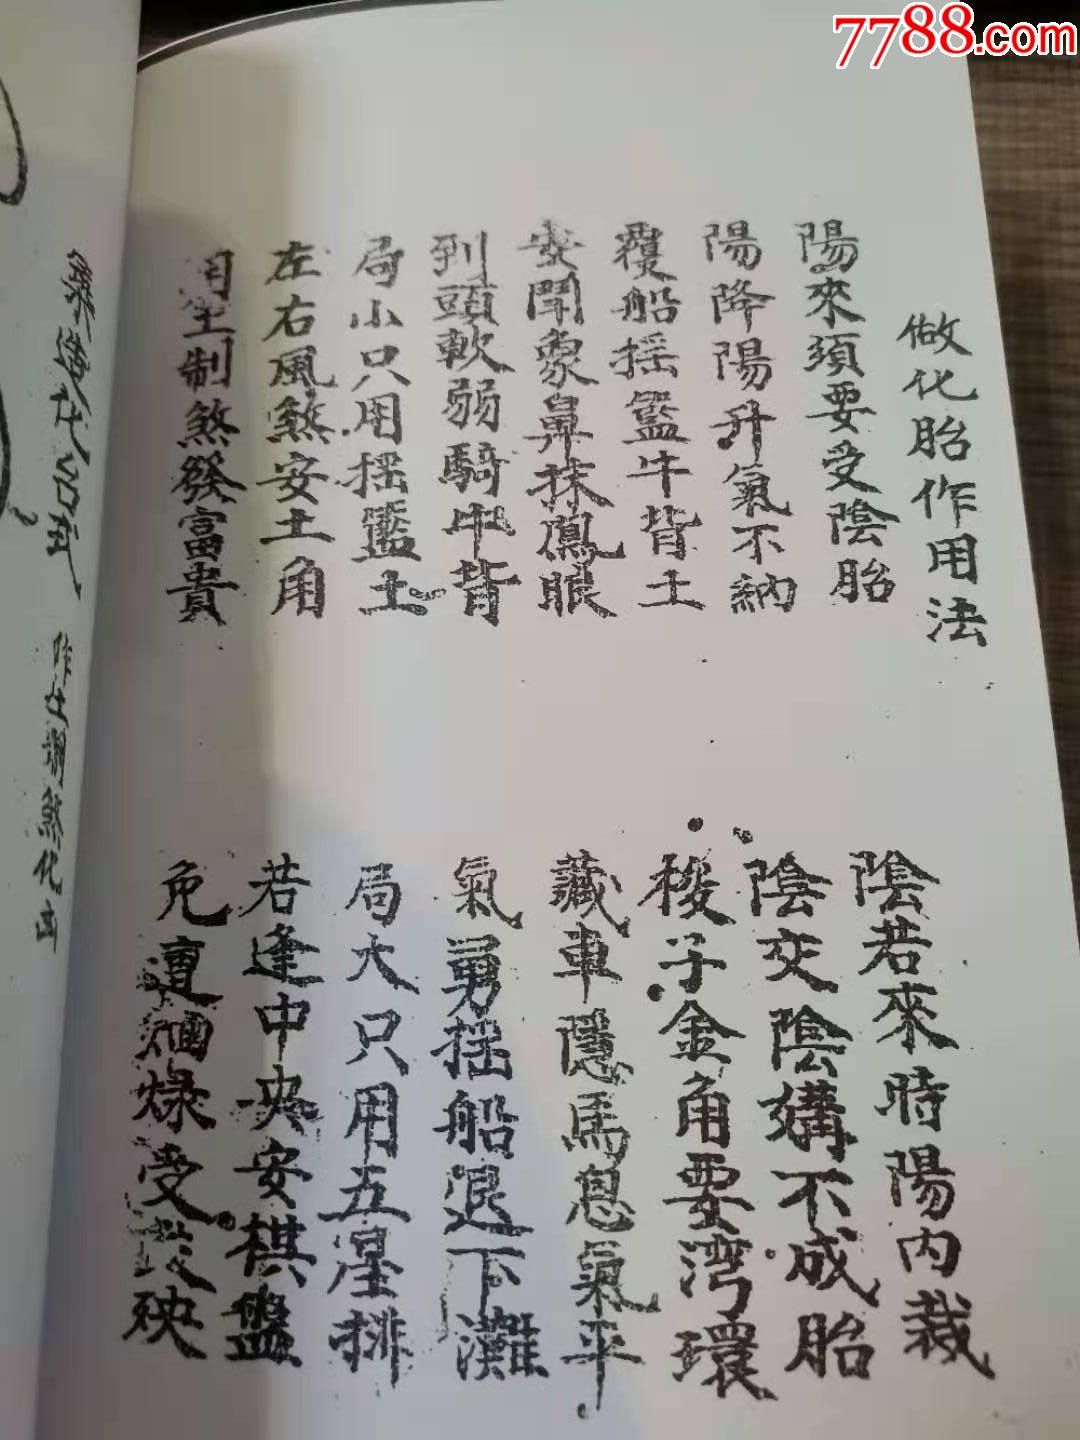 7788.com
做化胎作用法
陽來須要受陰胎
陰若來時陽內裁
陽降陽升氣不納
陰交陰媾不成胎
覆船搖籃牛背土
梭子金角要湾環
鬪象鼻抹鳳眼
藏車隱馬息氣平
到頭軟弱騎牛背
氣勇搖船退下灘
局小只用搖籃土
局大只用五星排
左右風煞安土角
若逢中央安棋盤
制煞發富貴
免遭受殃
台式
煞化